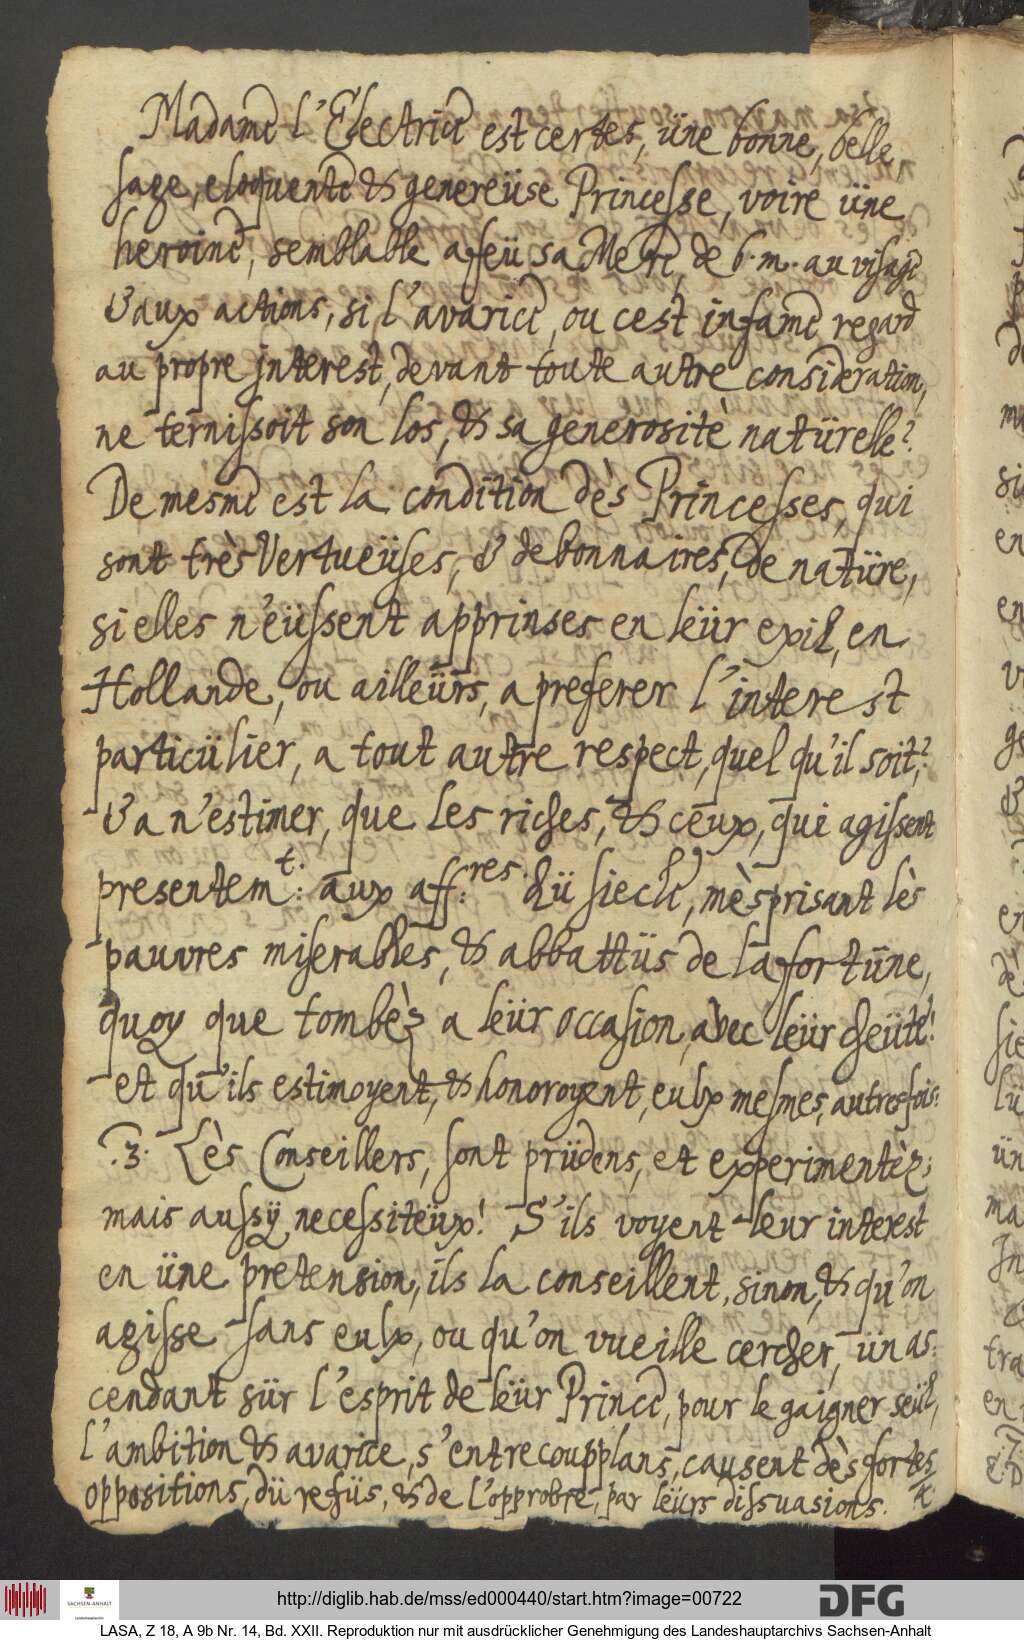 Madame l'Electrice est certes, üne bonne, belle,
sage, eloquente & genereüse Princesse, voire üne
heroine, semblable a feü sa Mere, de b. m. au visage
& aux actions, si l'avarice, ou cest infame regard
au propre interest, devant toute autre consideration,
ne ternissoit son los, & sa generositè natürelle?
De mesme est la condition dès Princesses, qui
sont très Vertueüses, & debonnaires, de natüre,
si elles n'eüssent apprinses en leür exil, en
Hollande, ou ailleürs, a preferer l'interest
particülier, a tout autre respect, quel qu'il soit,?
& a n'estimer, que les riches, & ceux, qui agissent
presentem.t: aux aff:res. dü siecle, mèsprisant lès
pauvres miserables, & abbattüs de la fortüne,
quoy que tombèz a leür occasion, avec leür cheüte!
et qu'ils estimoyent, & honoroyent, eulx mesmes, autresfois:
.3. Lès Conseillers, sont prüdens, et experimentèz;
mais aussÿ necessiteüx! S'ils voyent leur interest
en üne pretension, ils la conseillent, sinon, & qu'on
agisse sans eulx, ou qu'on vueille cercher, ün as:
cendant sür l'esprit de leür Prince, pour le gaigner seül,
l'ambition & avarice, s'entrecoupplans, causent dès fortes
oppositions, dü refüs, & de l'opprobre, par leürs dissuasions.
http://diglib.hab.de/mss/ed000440/start.htm?image=00722
DFG
SACHSEN-ANHALT
Landeshauptarchiv
LASA, Z 18, A 9b Nr. 14, Bd. XXII. Reproduktion nur mit ausdrücklicher Genehmigung des Landeshauptarchivs Sachsen-Anhalt